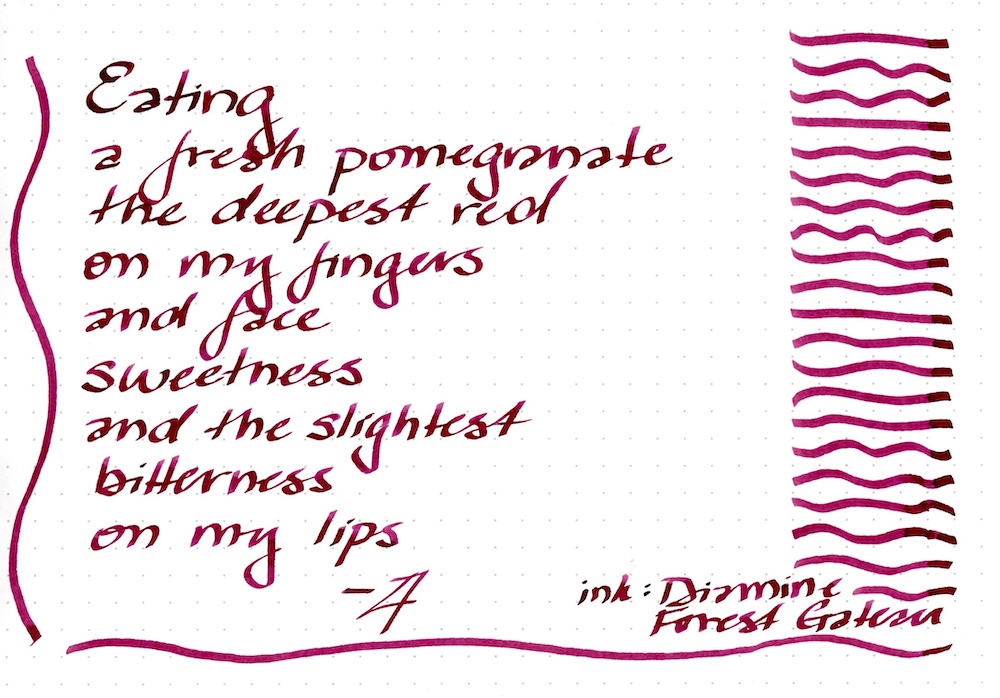 Eating
a fresh pomegranate
the deepest red
on my fingers
and face
sweetness
and the slightest
bitterness
on my lips
-A
ink: Diamine
Forest Gateau